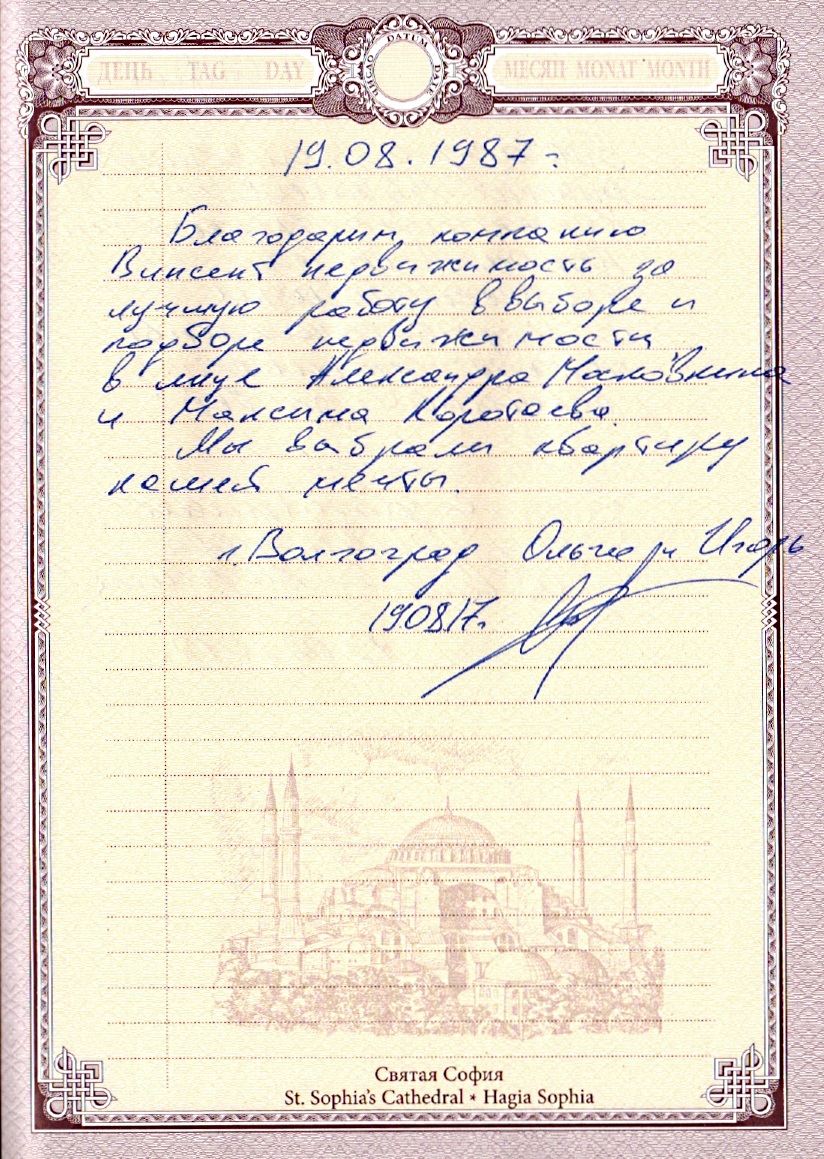 ДЕНЬ TAG DAY
ЧИСЛО DATUM DATE
МЕСЯЦ MONAT MONTH
19.08.1987г.
Благодарим компанию
Винсент недвижимость за
лучшую работу в выборе и
подборе недвижимости
в лице Александра
и Максима Коротаева.
Мы выбрали квартиру
нашей мечты.
г. Волгоград Ольга и Игорь
190817г.
Святая София
St. Sophia's Cathedral * Hagia Sophia